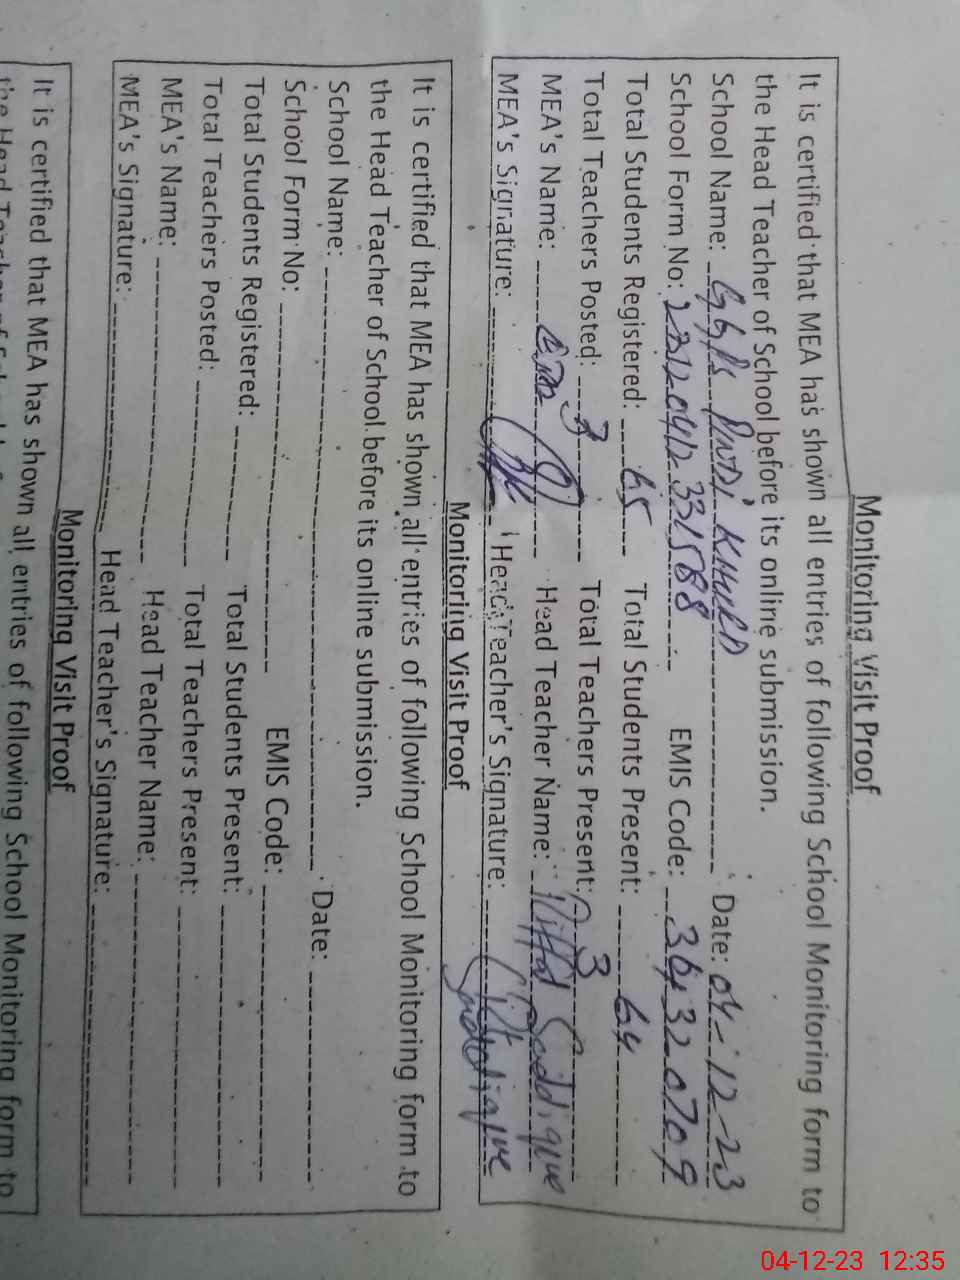 Monitoring Visit Proof
It is certified that MEA has shown all entries of following School Monitoring form to
the Head Teacher of School before its online submission.
School Name: KHURD Date: 04-12-23
School Form No: EMIS Code: 364320709
Total Students Registered: 65 Total Students Present: 64
Total Teachers Posted: 3 Total Teachers Present: 3
MEA's Name: Head Teacher Name: Siddique
MEA's Signature: Head Teacher's Signature:
Monitoring Visit Proof
It is certified that MEA has shown all entries of following School Monitoring form to
the Head Teacher of School before its online submission.
School Name: Date:
School Form No: EMIS Code:
Total Students Registered: Total Students Present:
Total Teachers Posted: Total Teachers Present:
MEA's Name: Head Teacher Name:
MEA's Signature: Head Teacher's Signature:
Monitoring Visit Proof
It is certified that MEA has shown all entries of following School Monitoring form to
04-12-23 12:35